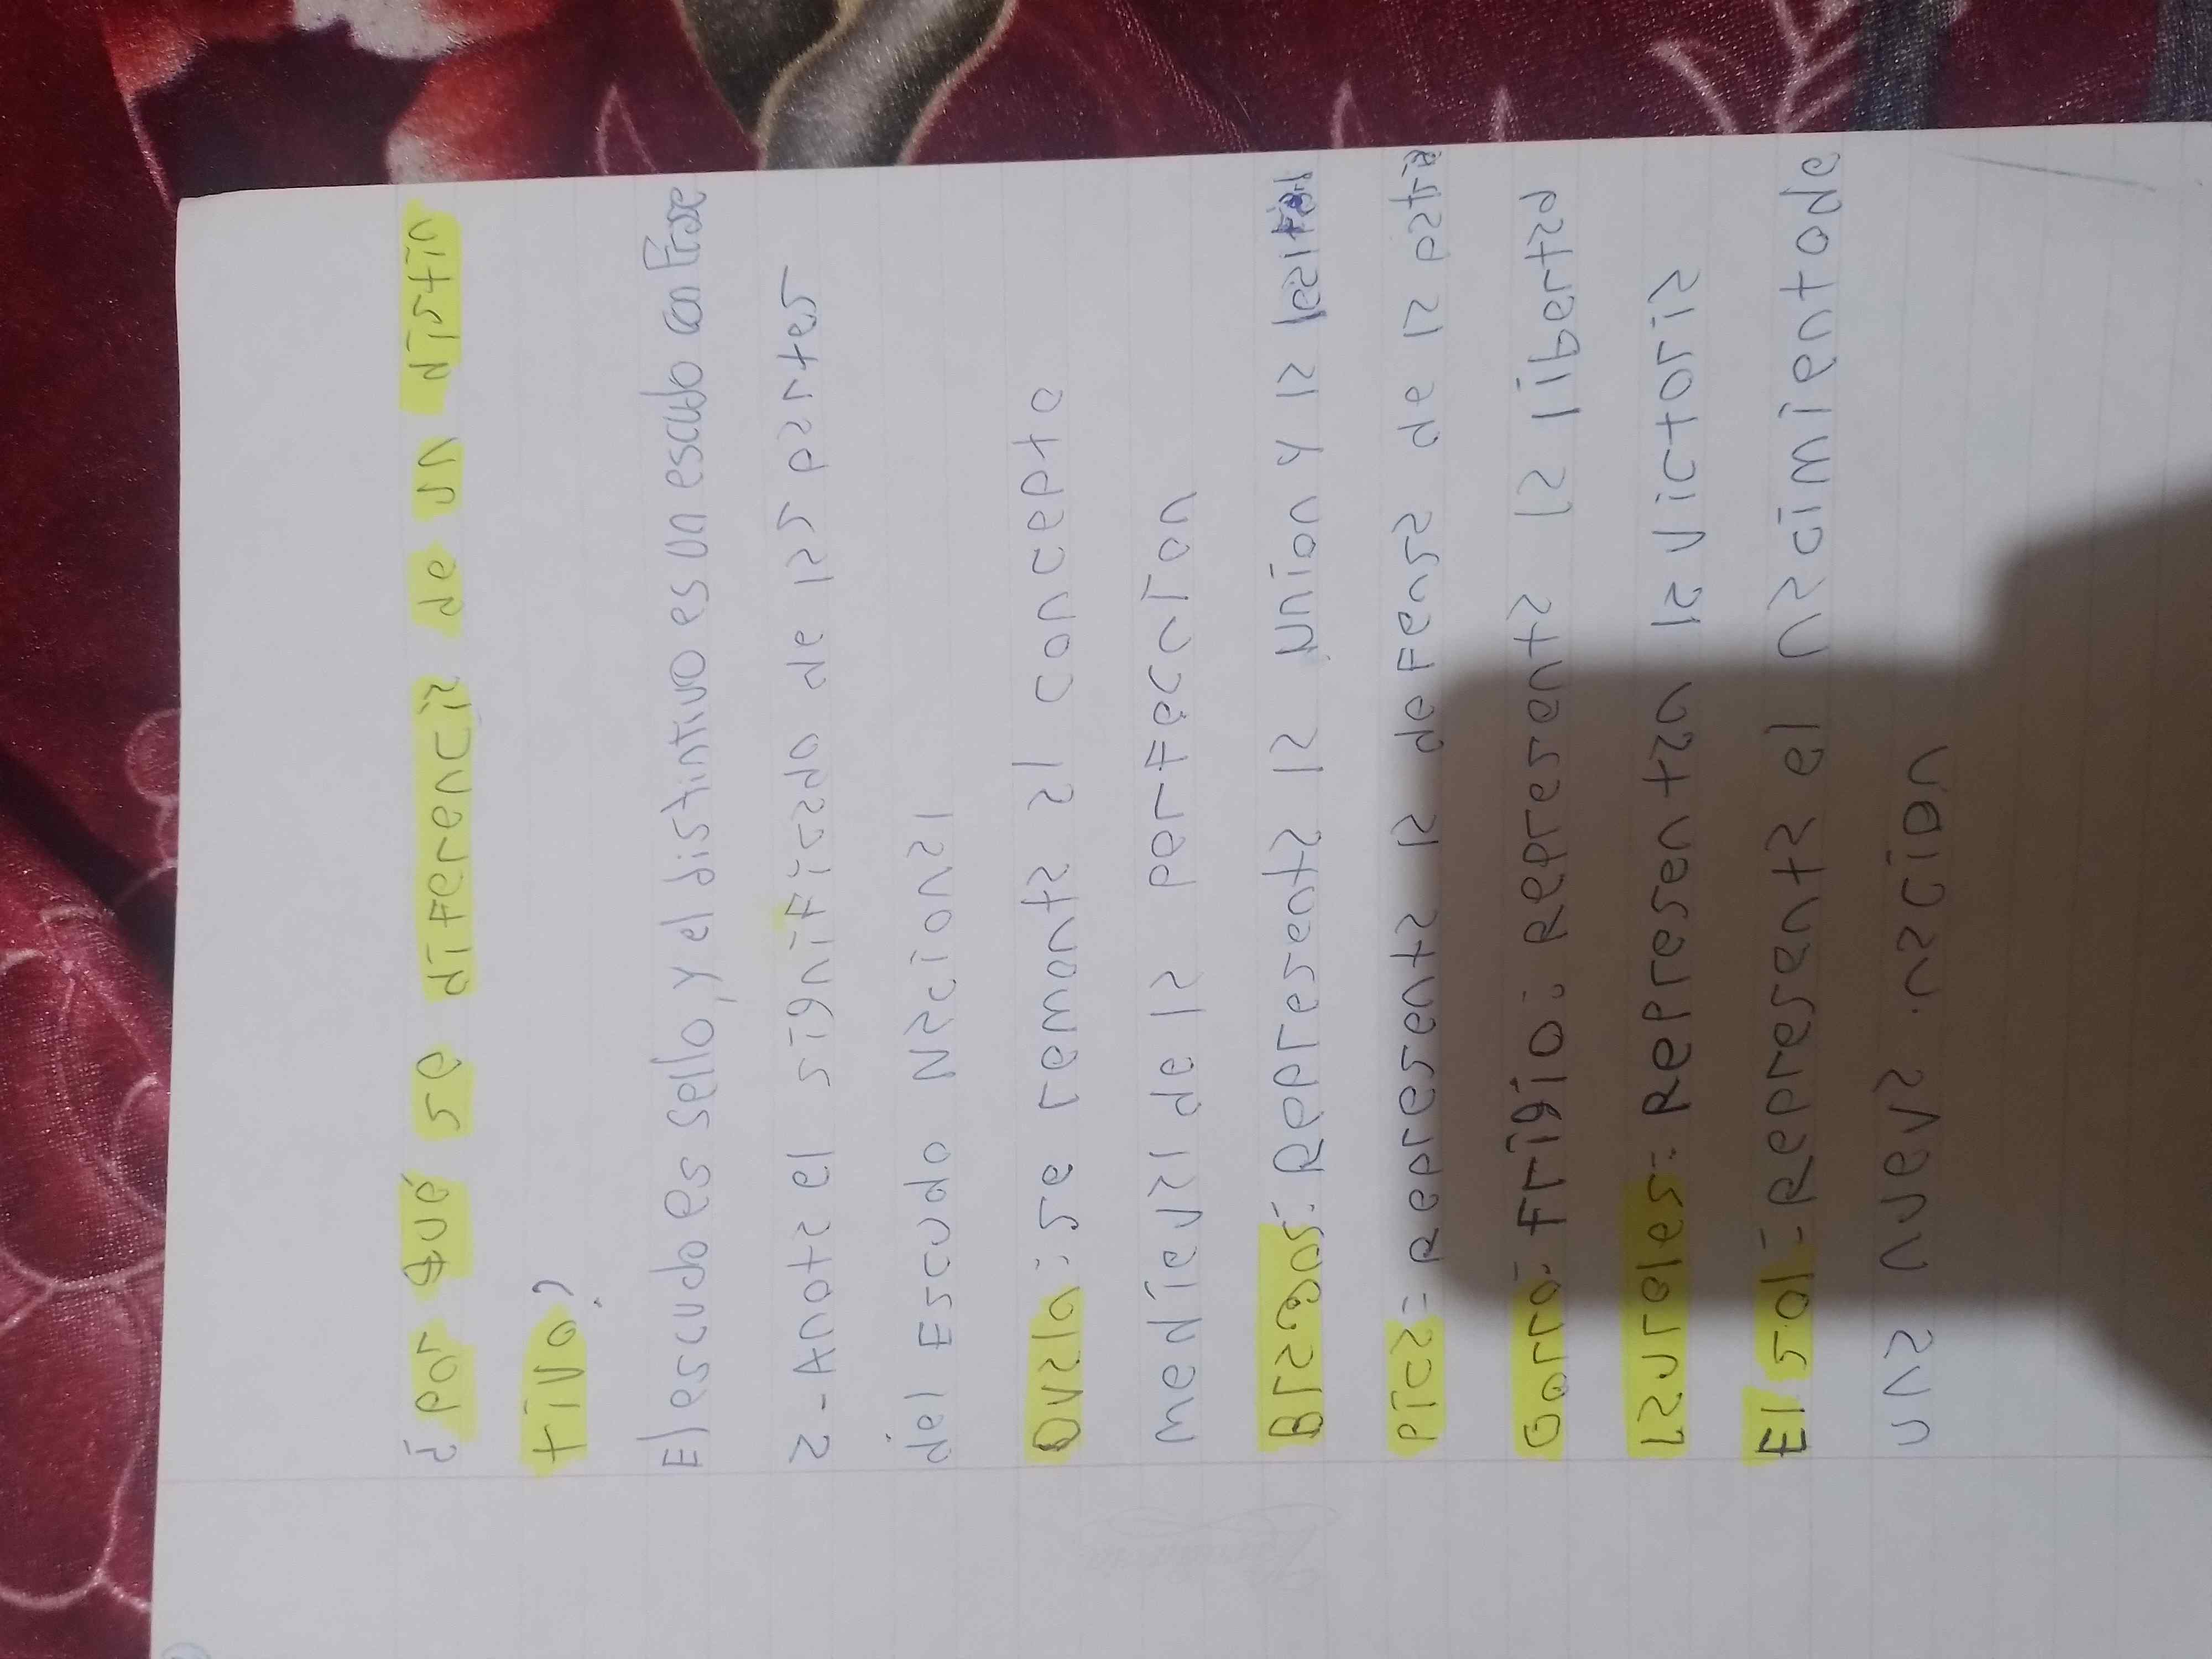 ¿por qué so diferencia de un Nistin
tivo?
El escudo es sello, y el distintivo es un escudo con Frase
2-Anota el significado de las partes
del Escudo Nacional
Ovalo: se remonta la concepto
medieval de la perfección
Brasos: Representa la Unión y la lealtad
pica: Representa la defensa de la patria
Gorro: Frigio: Representa la libertad
Laureles: Representan la Victoria
El sol: Representa el Nacimiento de
una nueva nación